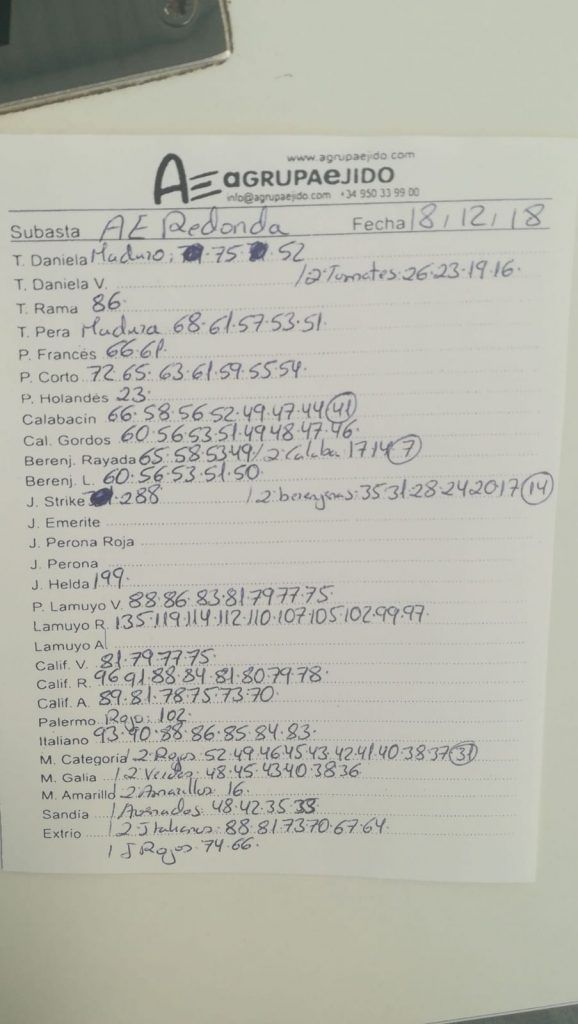 www.agrupaejido.com
AE aGRUPAeJIDO
info@agrupaejido.com +34 950 33 99 00
Subasta AE Redonda Fecha 18/12/18
T. Daniela Maduro: 75 52
T. Daniela V. /2 Tomates 26·23·19·16·
T. Rama 86·
T. Pera Madura 68·61·57·53·51·
P. Francés 66·61·
P. Corto 72·65·63·61·59·55·54·
P. Holandés 23·
Calabacin 66·58·56·52·49·47·44 41
Cal. Gordos 60·56·53·51·49·48·47·46·
Berenj. Rayada 65·58·53·49/2 Calaba 17·14·7
Berenj. L. 60·56·53·51·50·
J. Strike ·288 /2 berenjenas 35·31·28·24·20·17 14
J. Emerite
J. Perona Roja
J. Perona
J. Helda 199·
P. Lamuyo V. 88·86·83·81·79·77·75·
Lamuyo R. 135·119·114·112·110·107·105·102·99·97·
Lamuyo A.
Calif. V. 81·79·77·75·
Calif. R. 96·91·88·84·81·80·79·78·
Calif. A. 89·81·78·75·73·70·
Palermo Rojo: 102·
Italiano 93·90·88·86·85·84·83·
M. Categoría /2 Rojos 52·49·46·45·43·42·41·40·38·37 31
M. Galia /2 Verdes 48·45·43·40·38·36
M. Amarillo 2 Amarillos 16·
Sandía /Asurados 48·42·35·33
Extrio /2 Italianos 88·81·73·70·67·64·
/ J Rojos 74·66·